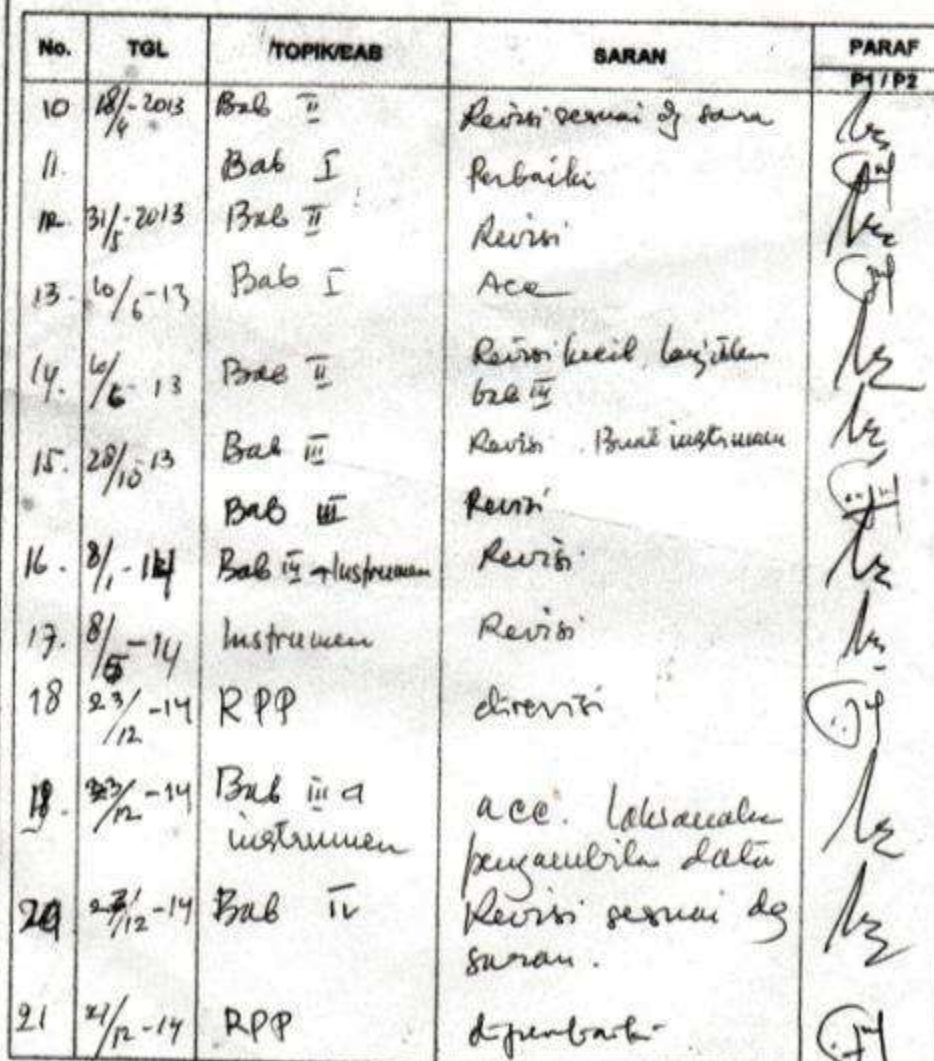 No. TGL TOPIK/BAB SARAN PARAF
P1 / P2
10 18/4-2013 Bab II Revisi sesuai dg sara
11. Bab I Perbaiki
12. 31/5-2013 Bab II Revisi
13. 10/6-13 Bab I Acc
14. 10/6-13 Bab II Revisi kecil, lanjutkan
bab III
15. 28/10-13 Bab III Revisi. Buat instrumen
Bab III Revisi
16. 8/1-14 Bab III + Instrumen Revisi
17. 8/5-14 Instrumen Revisi
18 23/12-14 RPP direvisi
19. 23/12-14 Bab III a acc. Laksanakan
instrumen pengambilan data
20 /12-14 Bab IV Revisi sesuai dg
saran.
21 /12-14 RPP diperbaiki